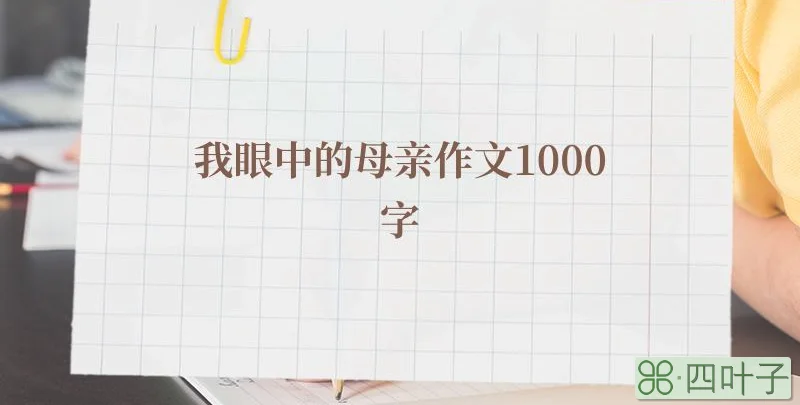 我眼中的母亲作文1000
字
四叶子